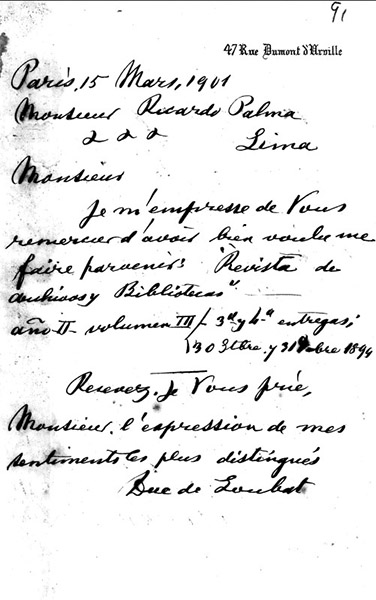 91
47 Rue Dumont d'Urville
Paris, 15 Mars, 1901
Monsieur Ricardo Palma
Lima
Monsieur
Je m'empresse de Vous
remercier d'avoir bien voulu me
faire parvenir: "Revista de
Archivos y Bibliotecas"
año II - volumen III - 3ª y 4ª entregas;
30 Stbre. y 31 1899
Recevez, Je Vous prie,
Monsieur, l'expression de mes
sentiments les plus distingués
Duc de Loubat